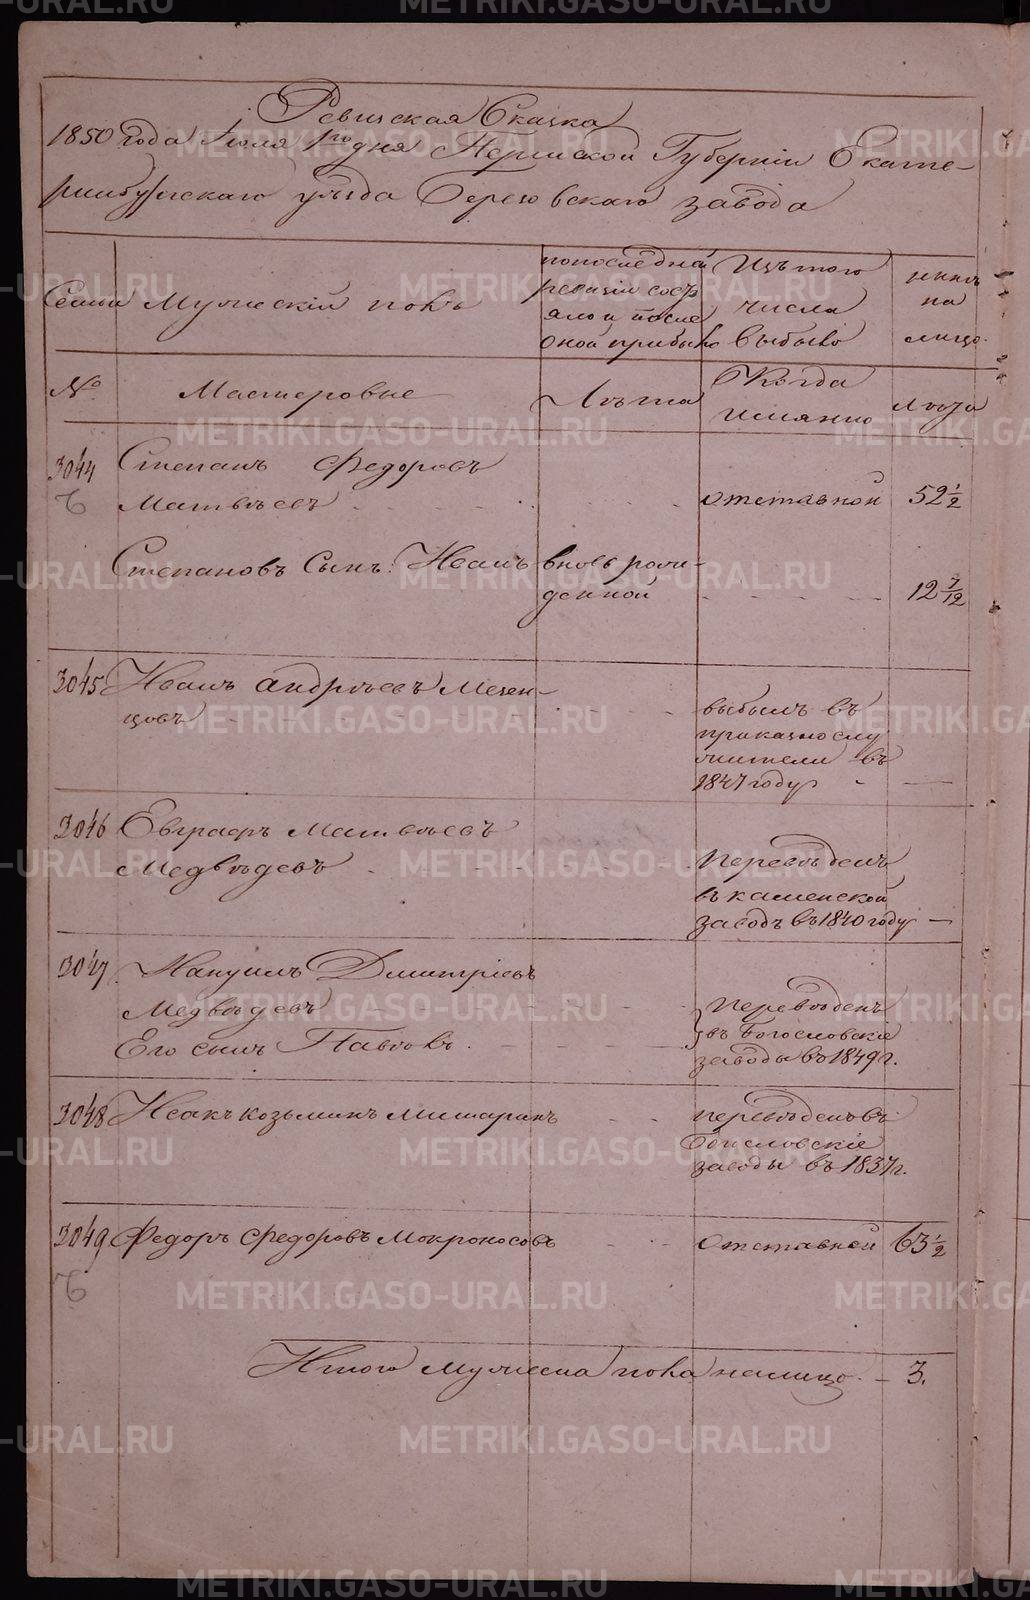 Ревизская Сказка
1850 года Июля 1го дня Пермской Губернии Екате-
ринбургскаго уѣзда Березовскаго завода
Семьи
Мужескій полъ
попоследней
ревизіи сост
яло и после
оной прибыло
Изъ того
числа
выбыло
нынѣ
на
лицо
№
Мастеровые
Лѣта
Когда
имянно
Лѣта
3044
Степанъ Федоровъ
Матвѣевъ
отставной
52 1/2
Степановъ Сынъ Иванъ
вновь рож-
денной
12 7/12
3045
Иванъ Андрѣевъ Мезен-
цовъ
выбылъ въ
приказнослу
жители въ
1847 году
3046
Евграфъ Матвѣевъ
Медвѣдевъ
Переведенъ
въ каменской
заводъ въ 1840 году
3047
Мануилъ Дмитріевъ
Медвѣдевъ
Его сынъ Павелъ
Переведенъ
въ Богословскіе
заводы въ 1849 г.
3048
Исакъ Козьминъ Мишаринъ
переведенъ въ
Богословскіе
заводы въ 1837 г.
3049
Федоръ Федоровъ Мокроносовъ
отставной
63 1/2
Итого мужеска пола налицо
3.
METRIKI.GASO-URAL.RU